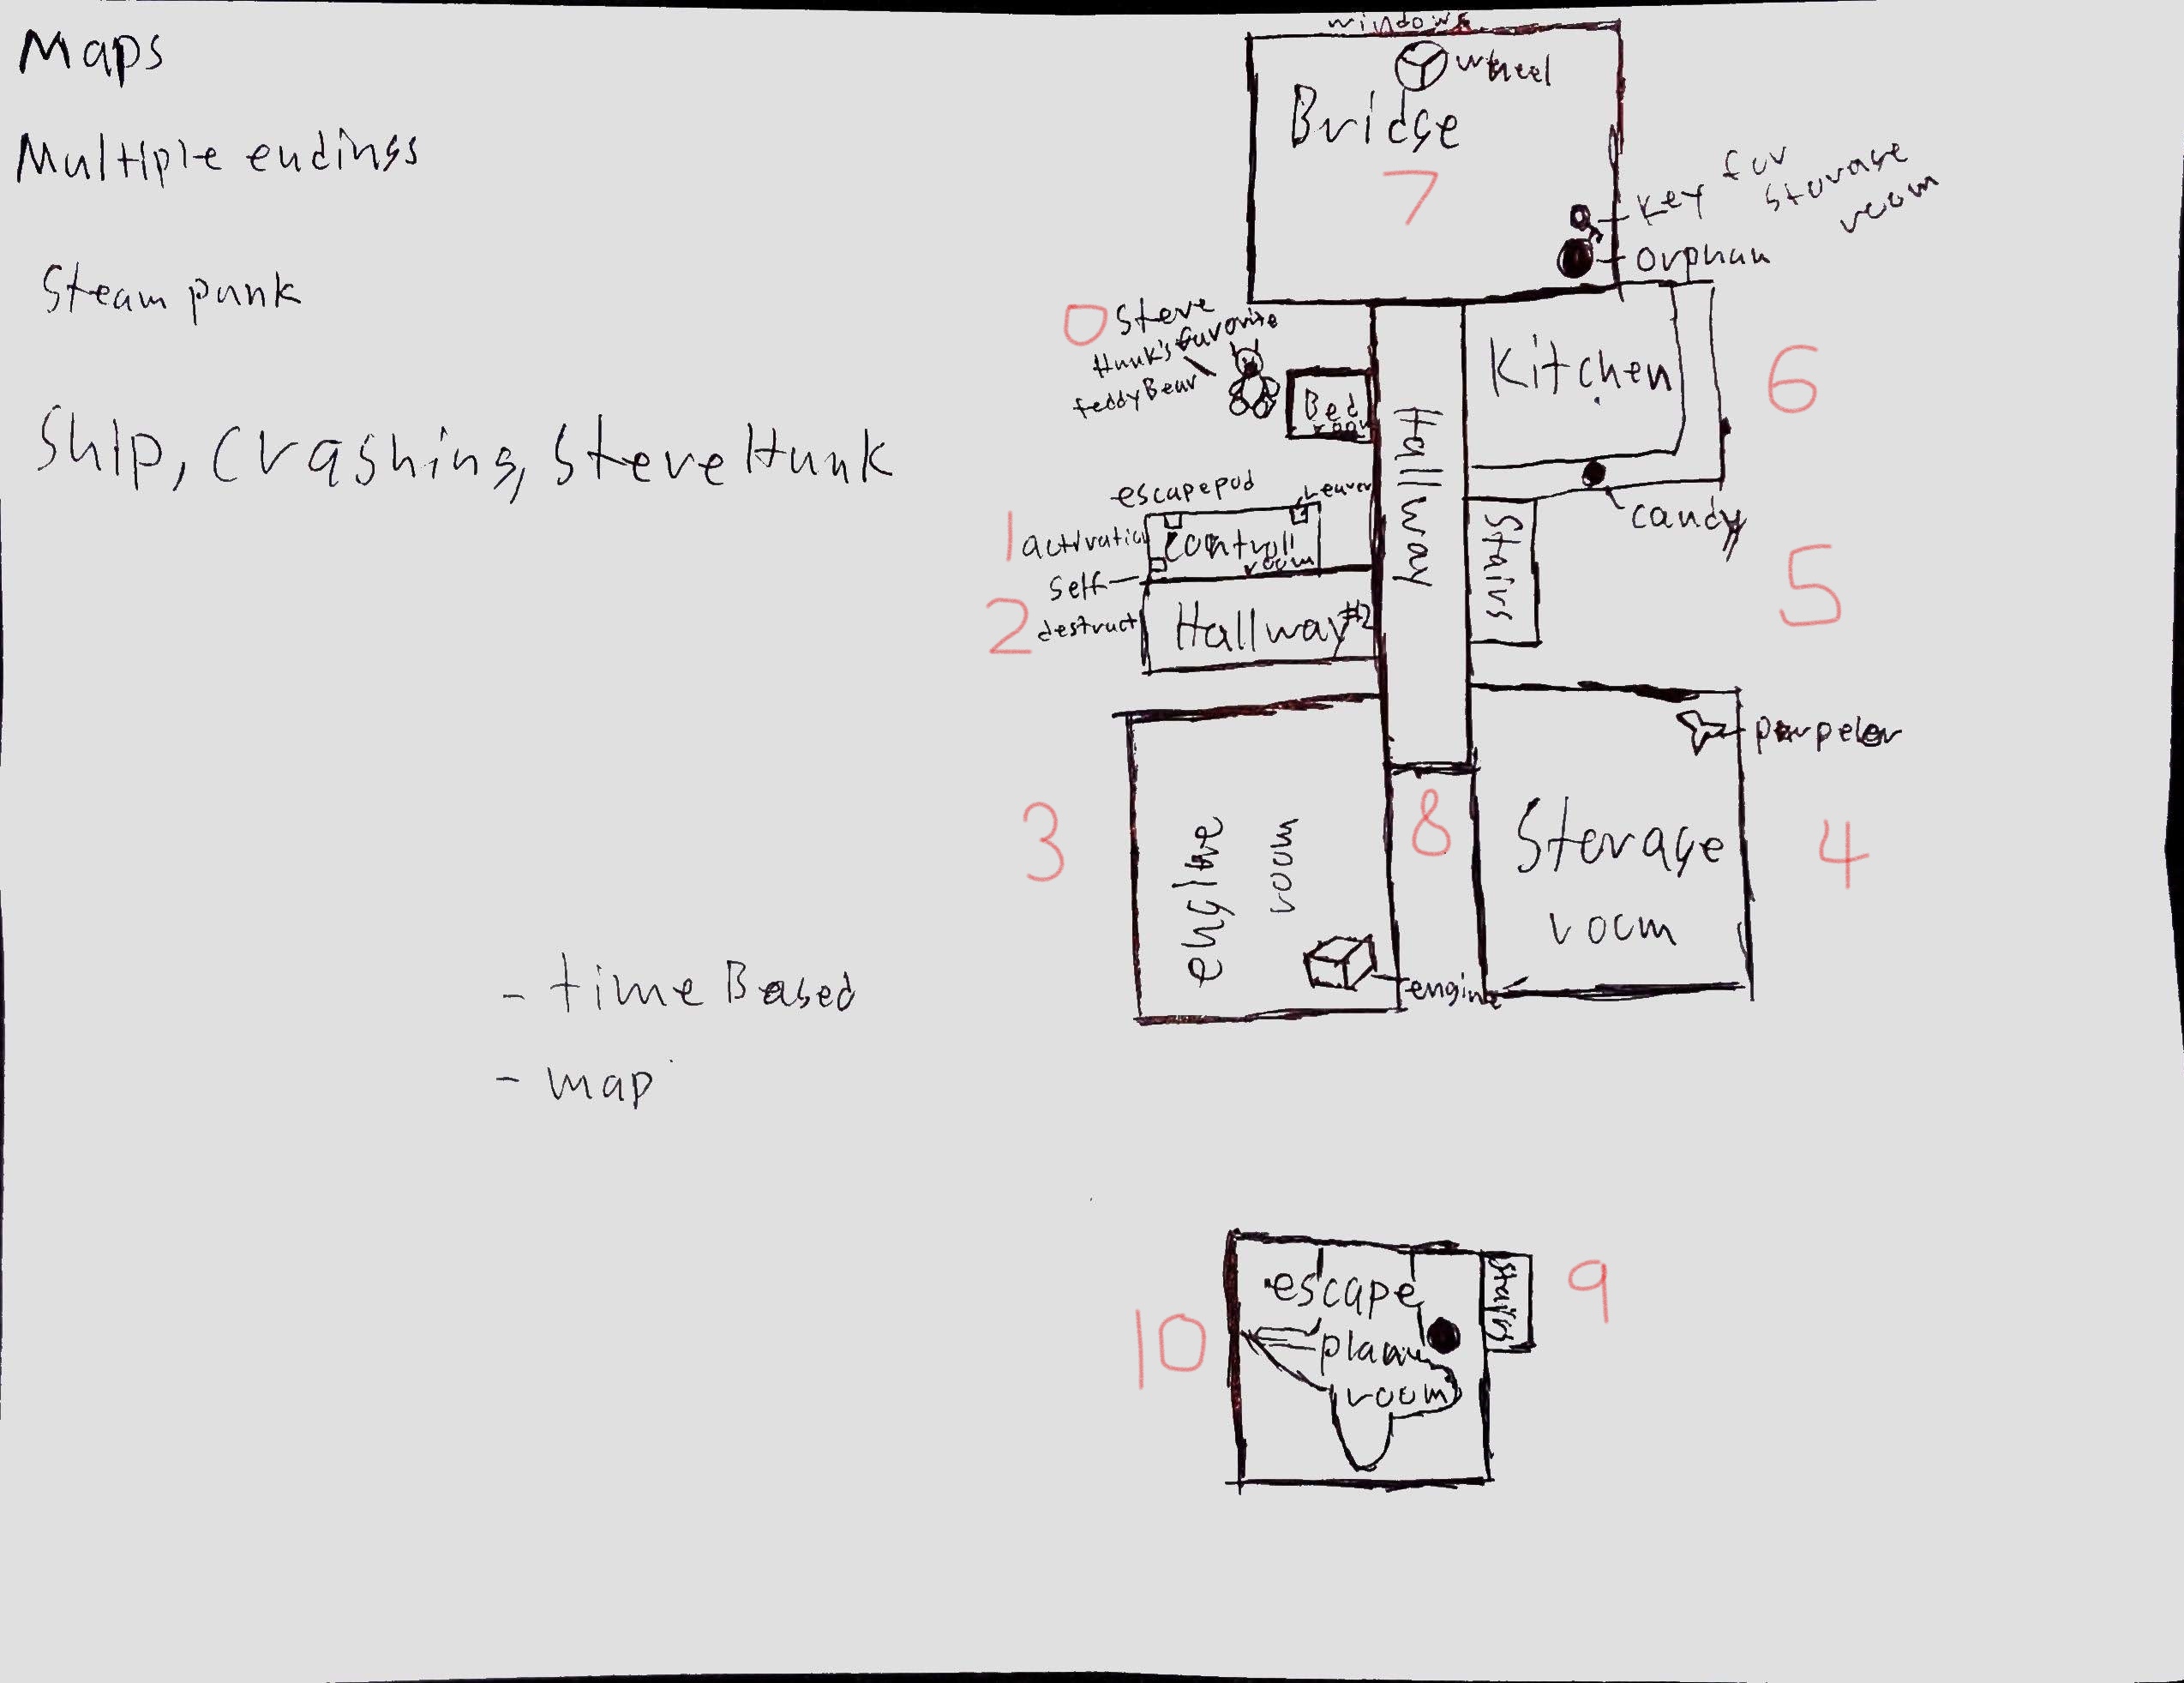 Maps
Multiple endings
Steam punk
Ship, crashing, Steve Hunk
- time Based
- map
windows
wheel
Bridge
7
key for
storage
room
orphan
0
Steve
Hunk's favorite
teddy Bear
Bed
room
Hallway
Kitchen
6
candy
escapepod
Leaver
1
activation
controll
room
self
destruct
2
Hallway #2
Stairs
5
3
engine
room
engine
8
perpeler
Storage
room
4
escape
plan
room
10
Stairs
9